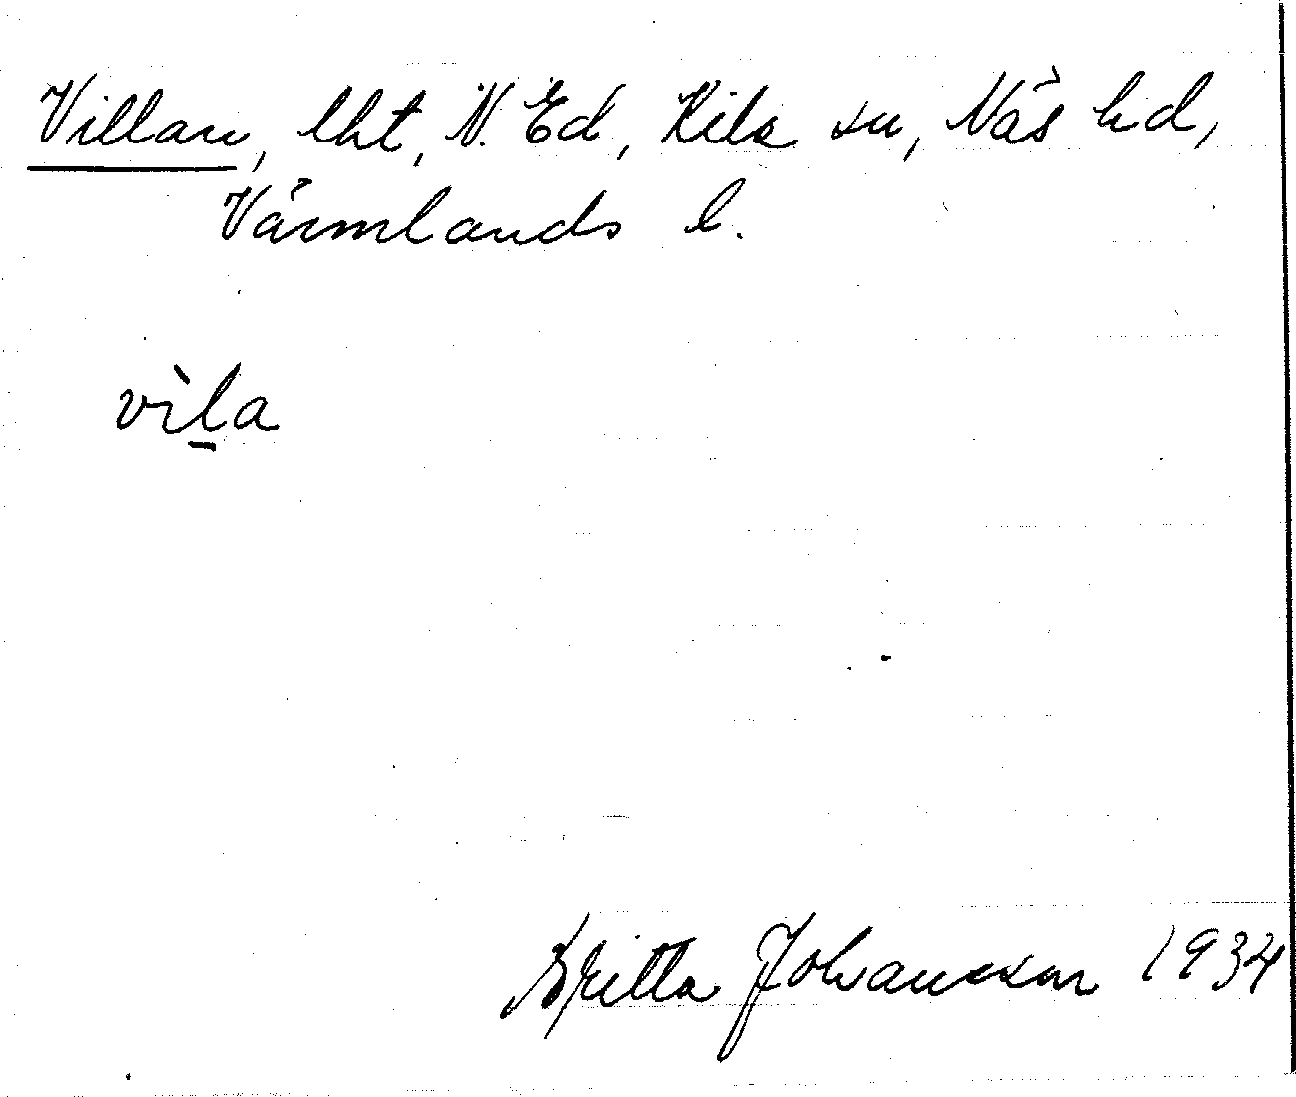 Villan, lht, N. Ed, Kila sn, Näs hd,
Värmlands l.
vìl̠a
Britta Johansson 1934